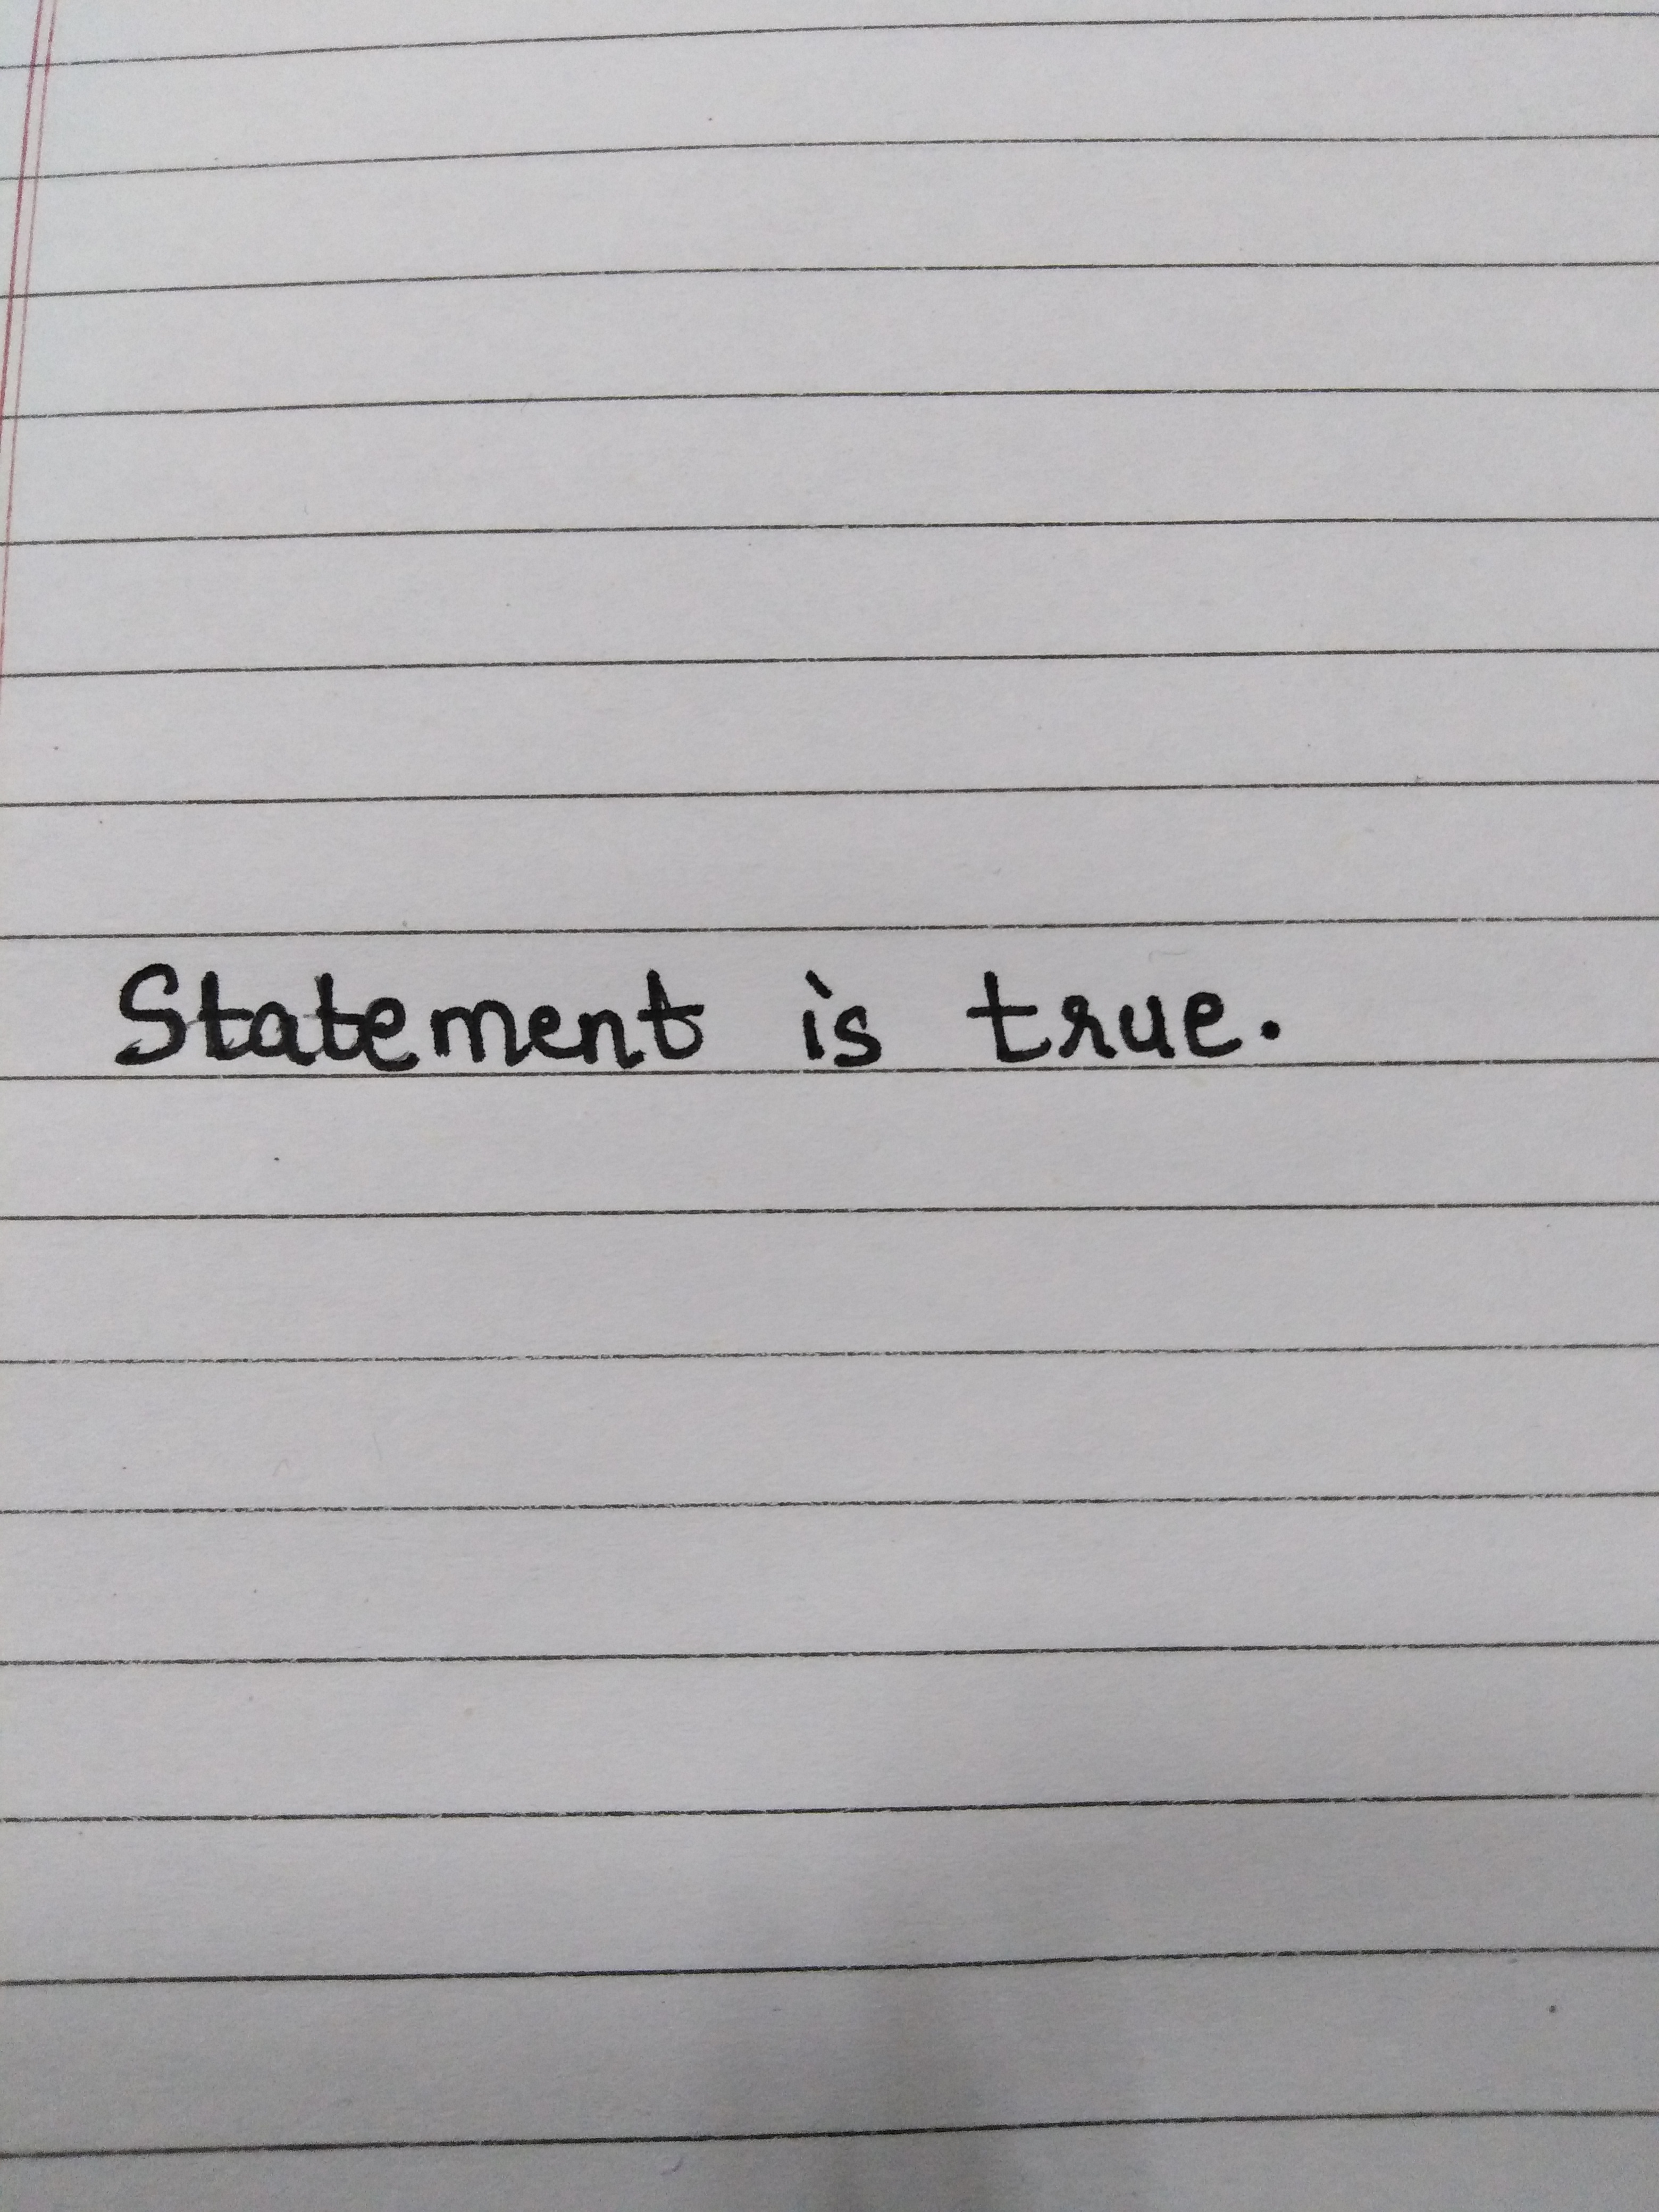 Statement is true.